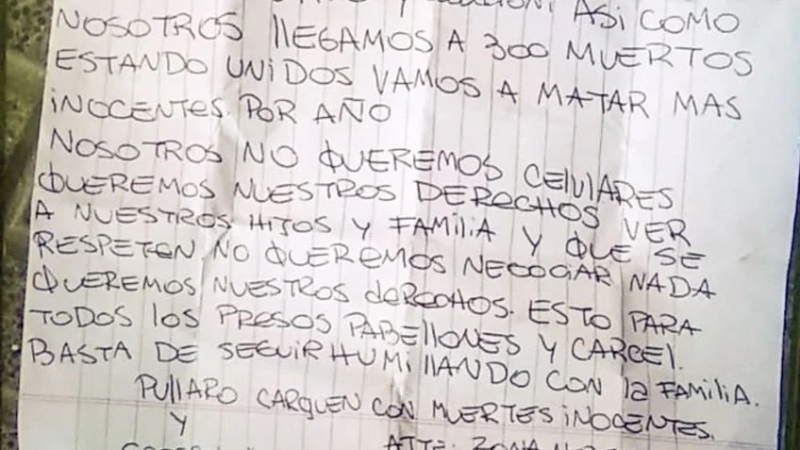 Y ASÍ COMO
NOSOTROS llEGAMOS A 300 MUERTOS
ESTANDO UNIDOS VAMOS A MATAR MAS
INOCENTES. POR AÑO
NOSOTROS NO QUEREMOS CElUlARES
QUEREMOS NUESTROS DERECHOS VER
A NUESTROS HIJOS Y FAMILIA Y QUE SE
RESPETEN NO QUEREMOS NEGOCIAR NADA
QUEREMOS NUESTROS dERECHOS. ESTO PARA
TODOS lOS PRESOS PABEllONES Y CARCEl.
BASTA DE SEGUIR HUMillANDO CON la FAMILIA.
PUllARO CARGUEN CON MUERTES INOCENTES.
Y
ATTE: ZONA